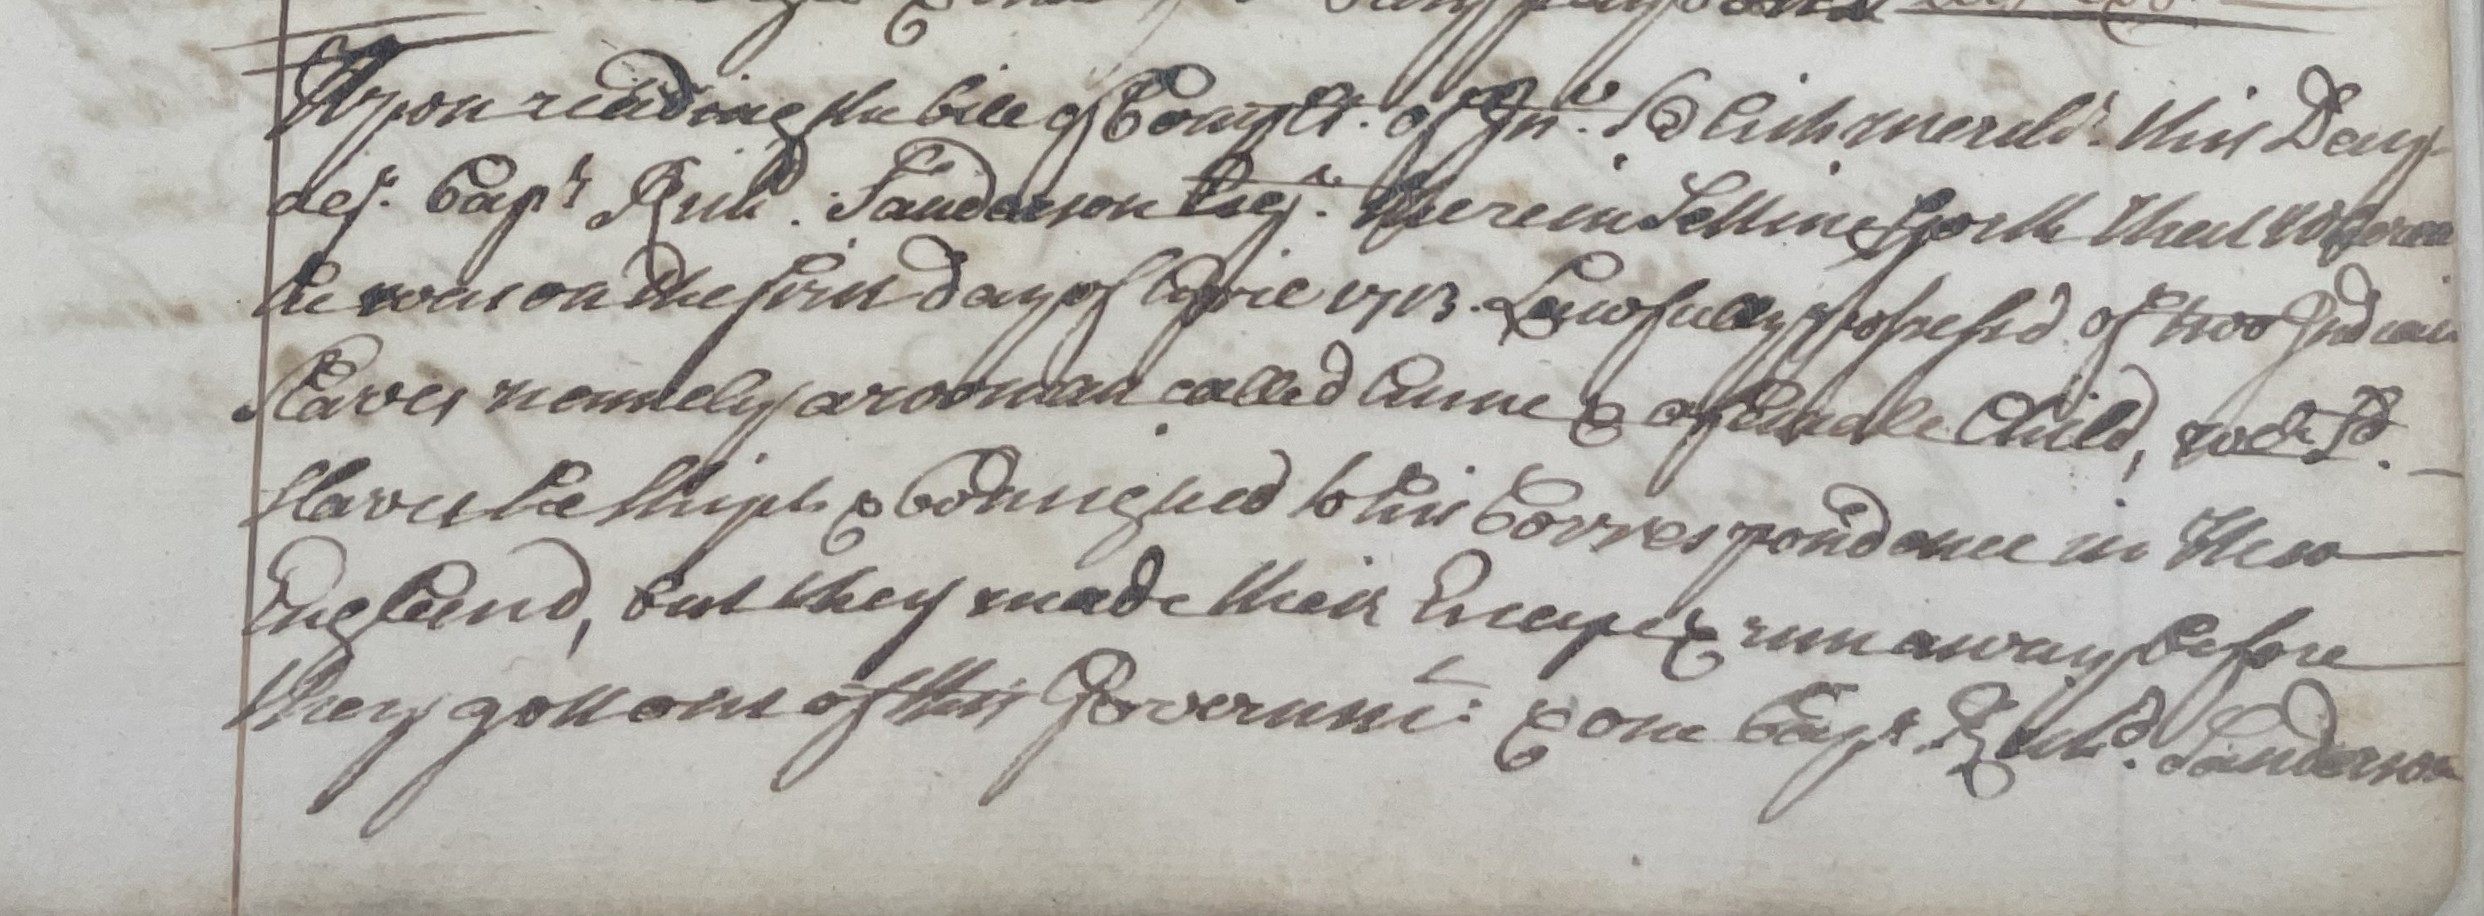 Upon reading the bill of Complt. of Jno. merchr. this Day
agt. Capt. Richd. Sanderson Esqr. therein Setting forth that whereas
he was on the first day of Aprile 1713. Lawfully possess'd of two Indian
Slaves namely a woman called Anne & a female Child, wch. sd.
Slaves he Shipt & Consigned to his Correspondence in New
England, but they made their Escape & run away before
they gott out of this Governmt: & one Capt. Richd. Sanderson